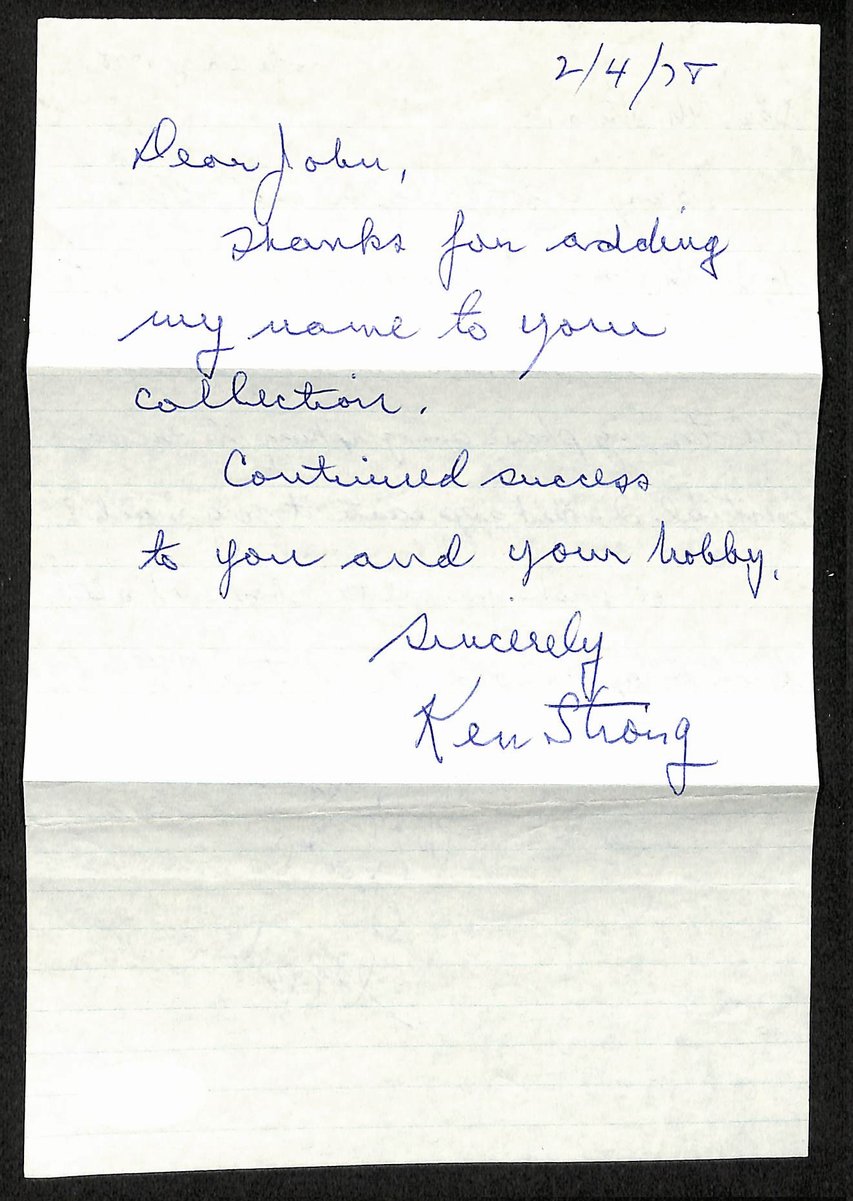 2/4/78
Dear John,
Thanks for adding
my name to your
collection.
Continued success
to you and your hobby.
Sincerely
Ken Strong